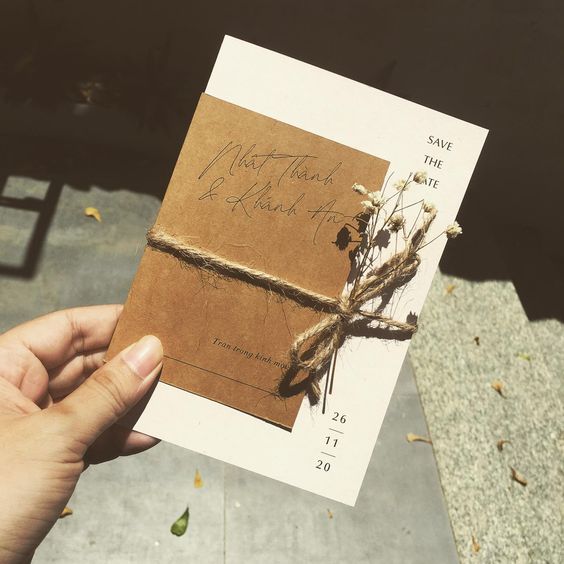 Nhất Thành
& Khánh An
Trân trọng kính mời
SAVE
THE
DATE
26
11
20